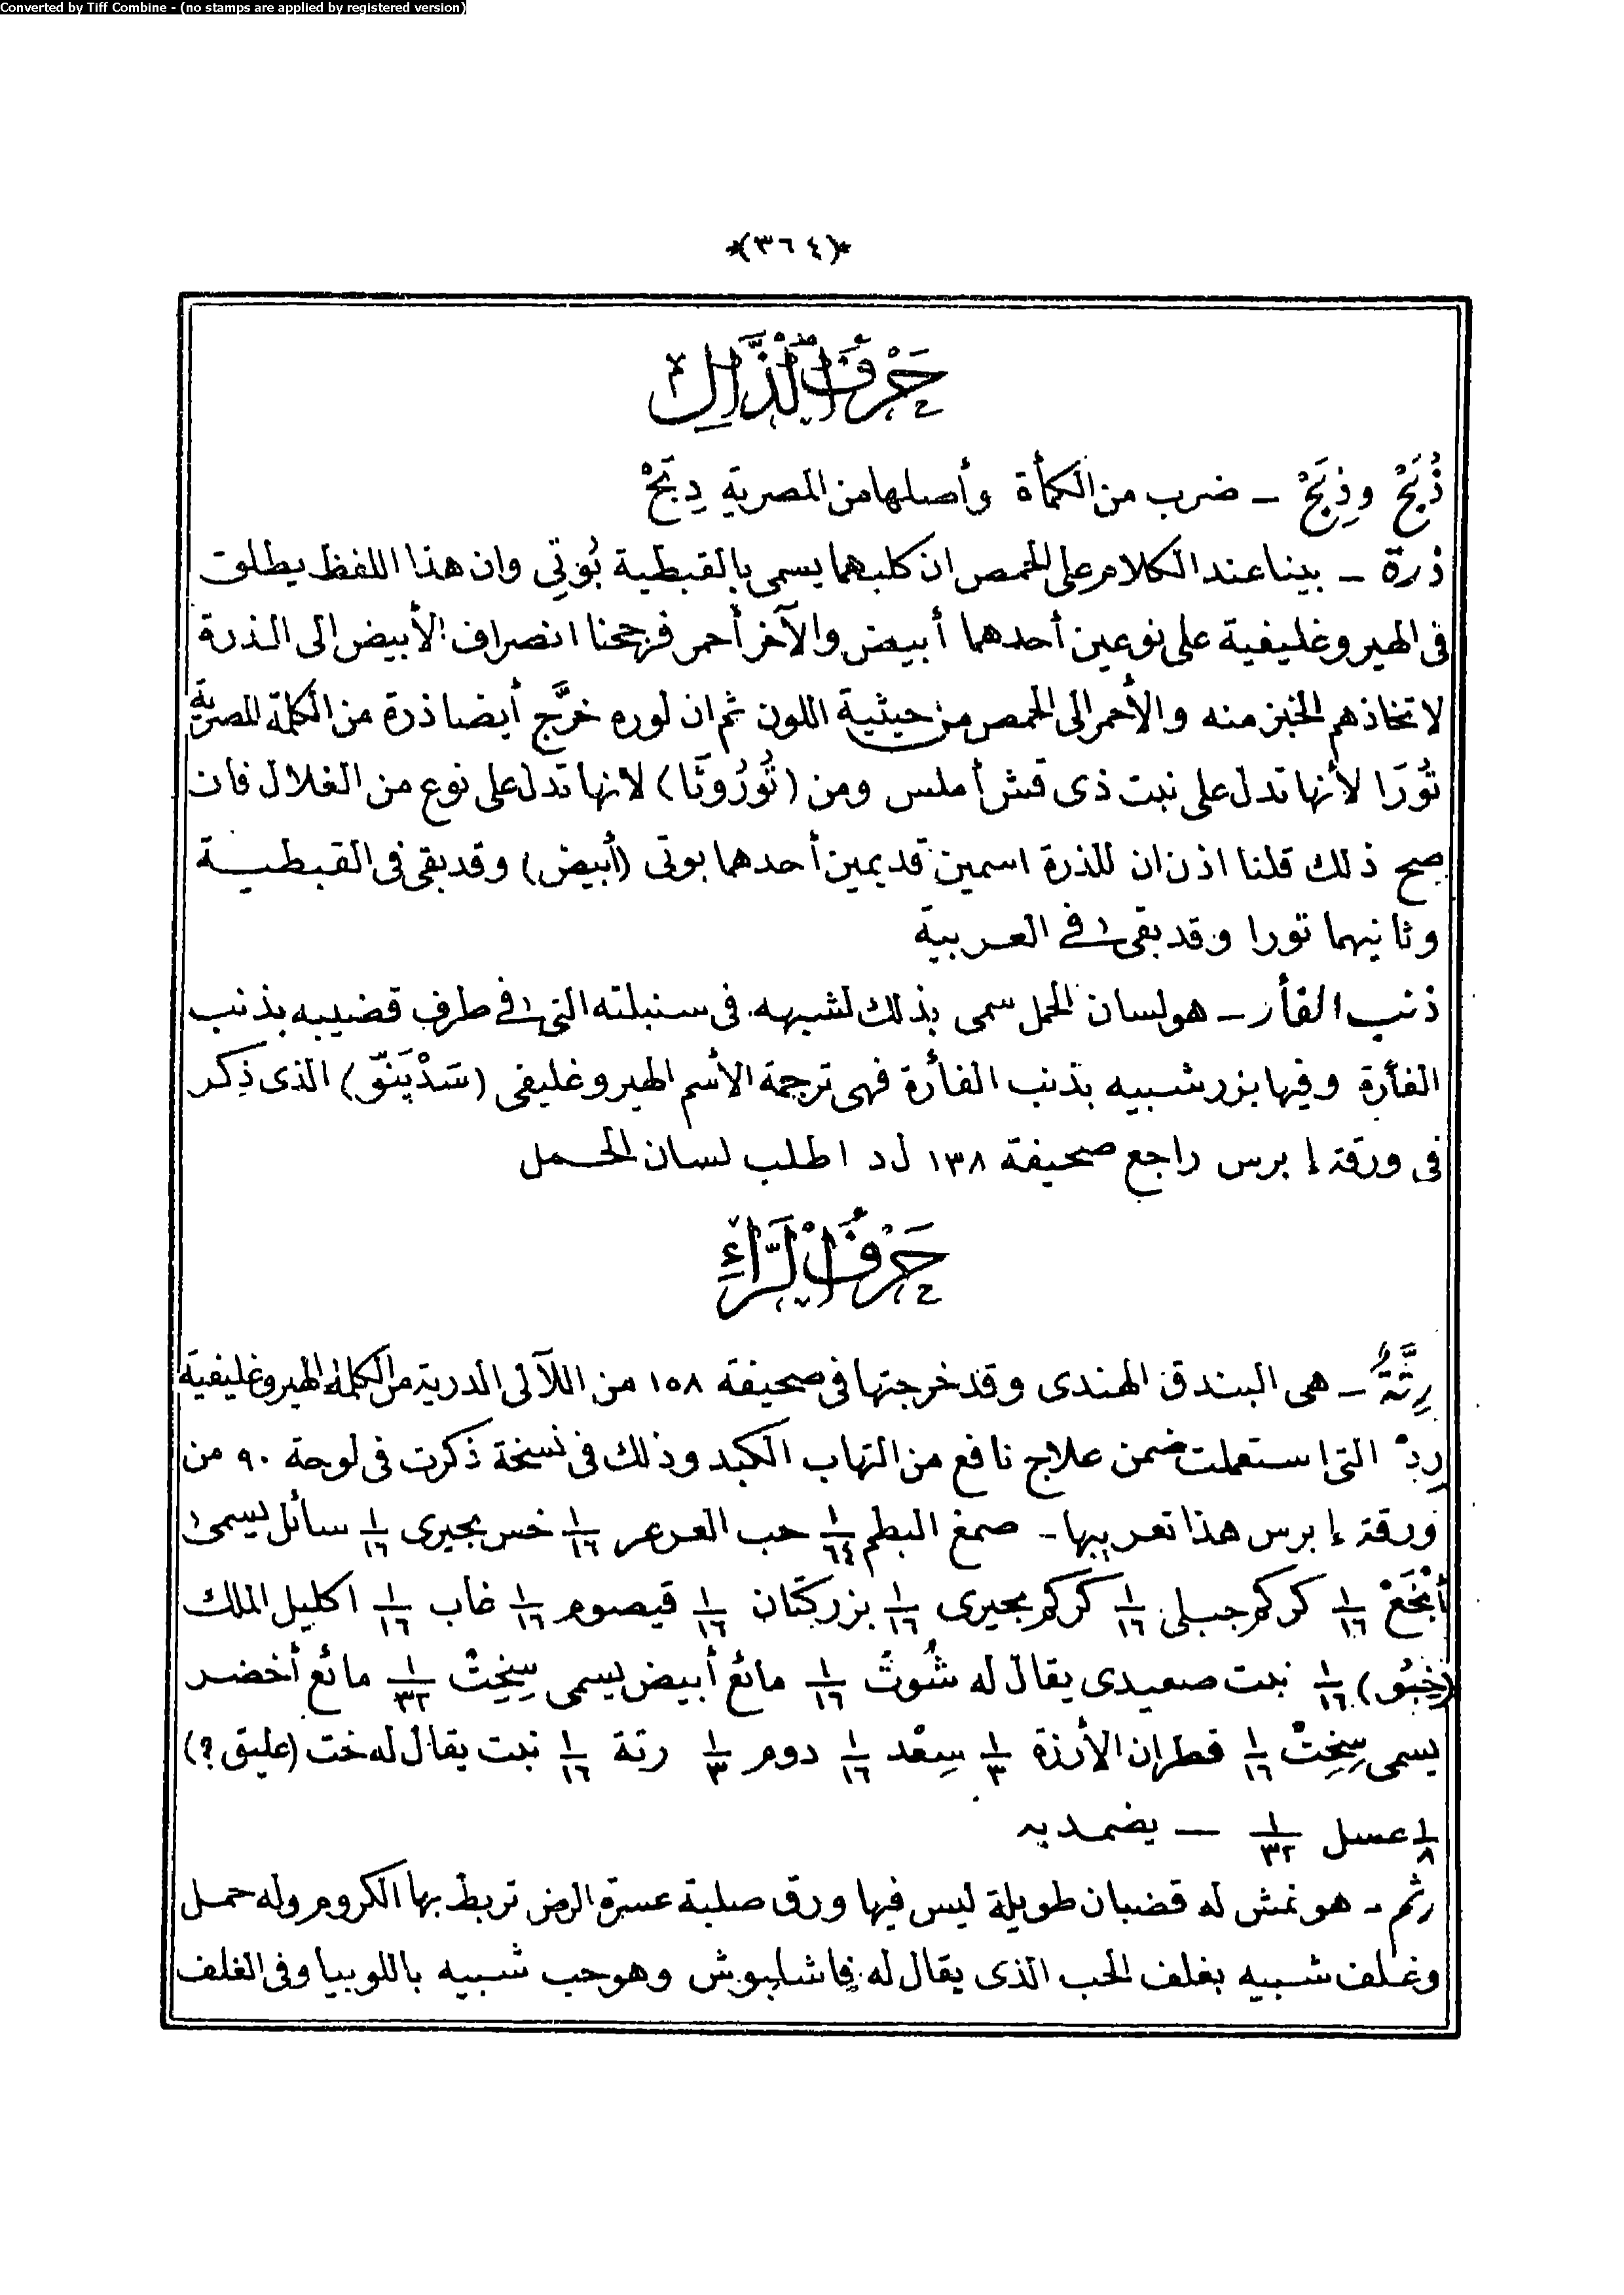 Converted by Tiff Combine - (no stamps are applied by registered version)
*(٣٦٤)*
حَرْفُ الذَّالِ
ذُبَحْ وذِبَحْ – ضرب من الكمأة وأصلها من المصرية دِبَحْ
ذرة – بينا عند الكلام على الحمص ان كليهما يسمى بالقبطية بُوتِي وان هذا اللفظ يطلق
فى الهيروغليفية على نوعين أحدهما أبيض والآخر أحمر فرجحنا انصراف الأبيض الى الذرة
لاتخاذهم الخبز منه والأحمر الى الحمص من حيثية اللون ثم ان لوره خرَّج أيضا ذرة من الكلمة المصرية
تُورَا لأنها تدل على نبت ذى قش أملس ومن (تُورُوتَا) لانها تدل على نوع من الغلال فان
صح ذلك قلنا اذن ان للذرة اسمين قديمين أحدهما بوتى (أبيض) وقد بقى فى القبطية
وثانيهما تورا وقد بقى فى العربية
ذنب الفأر – هو لسان الحمل سمى بذلك لشبهه فى سنبلته التى فى طرف قضيبه بذنب
الفأرة وفيها بزر شبيه بذنب الفأرة فهى ترجمة الأسم الهيروغليفى (سَدْبَنّ) الذى ذِكر
فى ورقة إبرس راجع صحيفة ١٣٨ ل د اطلب لسان الحمل
حَرْفُ الرَّاءِ
رِتَّةٌ – هى البندق الهندى وقد خرجتها فى صحيفة ١٥٨ من اللآلى الدرية من الكلمة الهيروغليفية
رِدْ التى استعملت ضمن علاج نافع من التهاب الكبد وذلك فى نسخة ذكرت فى لوحة ٩٠ من
ورقة إبرس هذا تعريبها – صمغ البطم ١/٦٤ حب العرعر ١/١٦ خس بحيرى ١/١٦ سائل يسمى
أَبْخَعْ ١/١٦ كركم جبلى ١/١٦ كركم بحيرى ١/١٦ بزر كتان ١/١٦ قيصوم ١/١٦ غاب ١/١٦ اكليل الملك
١/١٦ نبت صعيدى يقال له شُوتْ ١/١٦ مائع أبيض يسمى سِخِتْ ١/٣٢ مائع أخضر
يسمى سِخِتْ ١/١٦ قطران الأرزة ١/٣ سِعْد ١/١٦ دوم ١/٣ رتة ١/١٦ نبت يقال له خت (عليق ؟)
١/٨ عسل ١/٣٢ — يضمد به
رثم – هو نمش له قضبان طويلة ليس فيها ورق صلبة عسرة الرض تربط بها الكروم وله حمل
وغلف شبيه بغلف الحب الذى يقال له فاشليوش وهو حب شبيه باللوبيا وفى الغلف